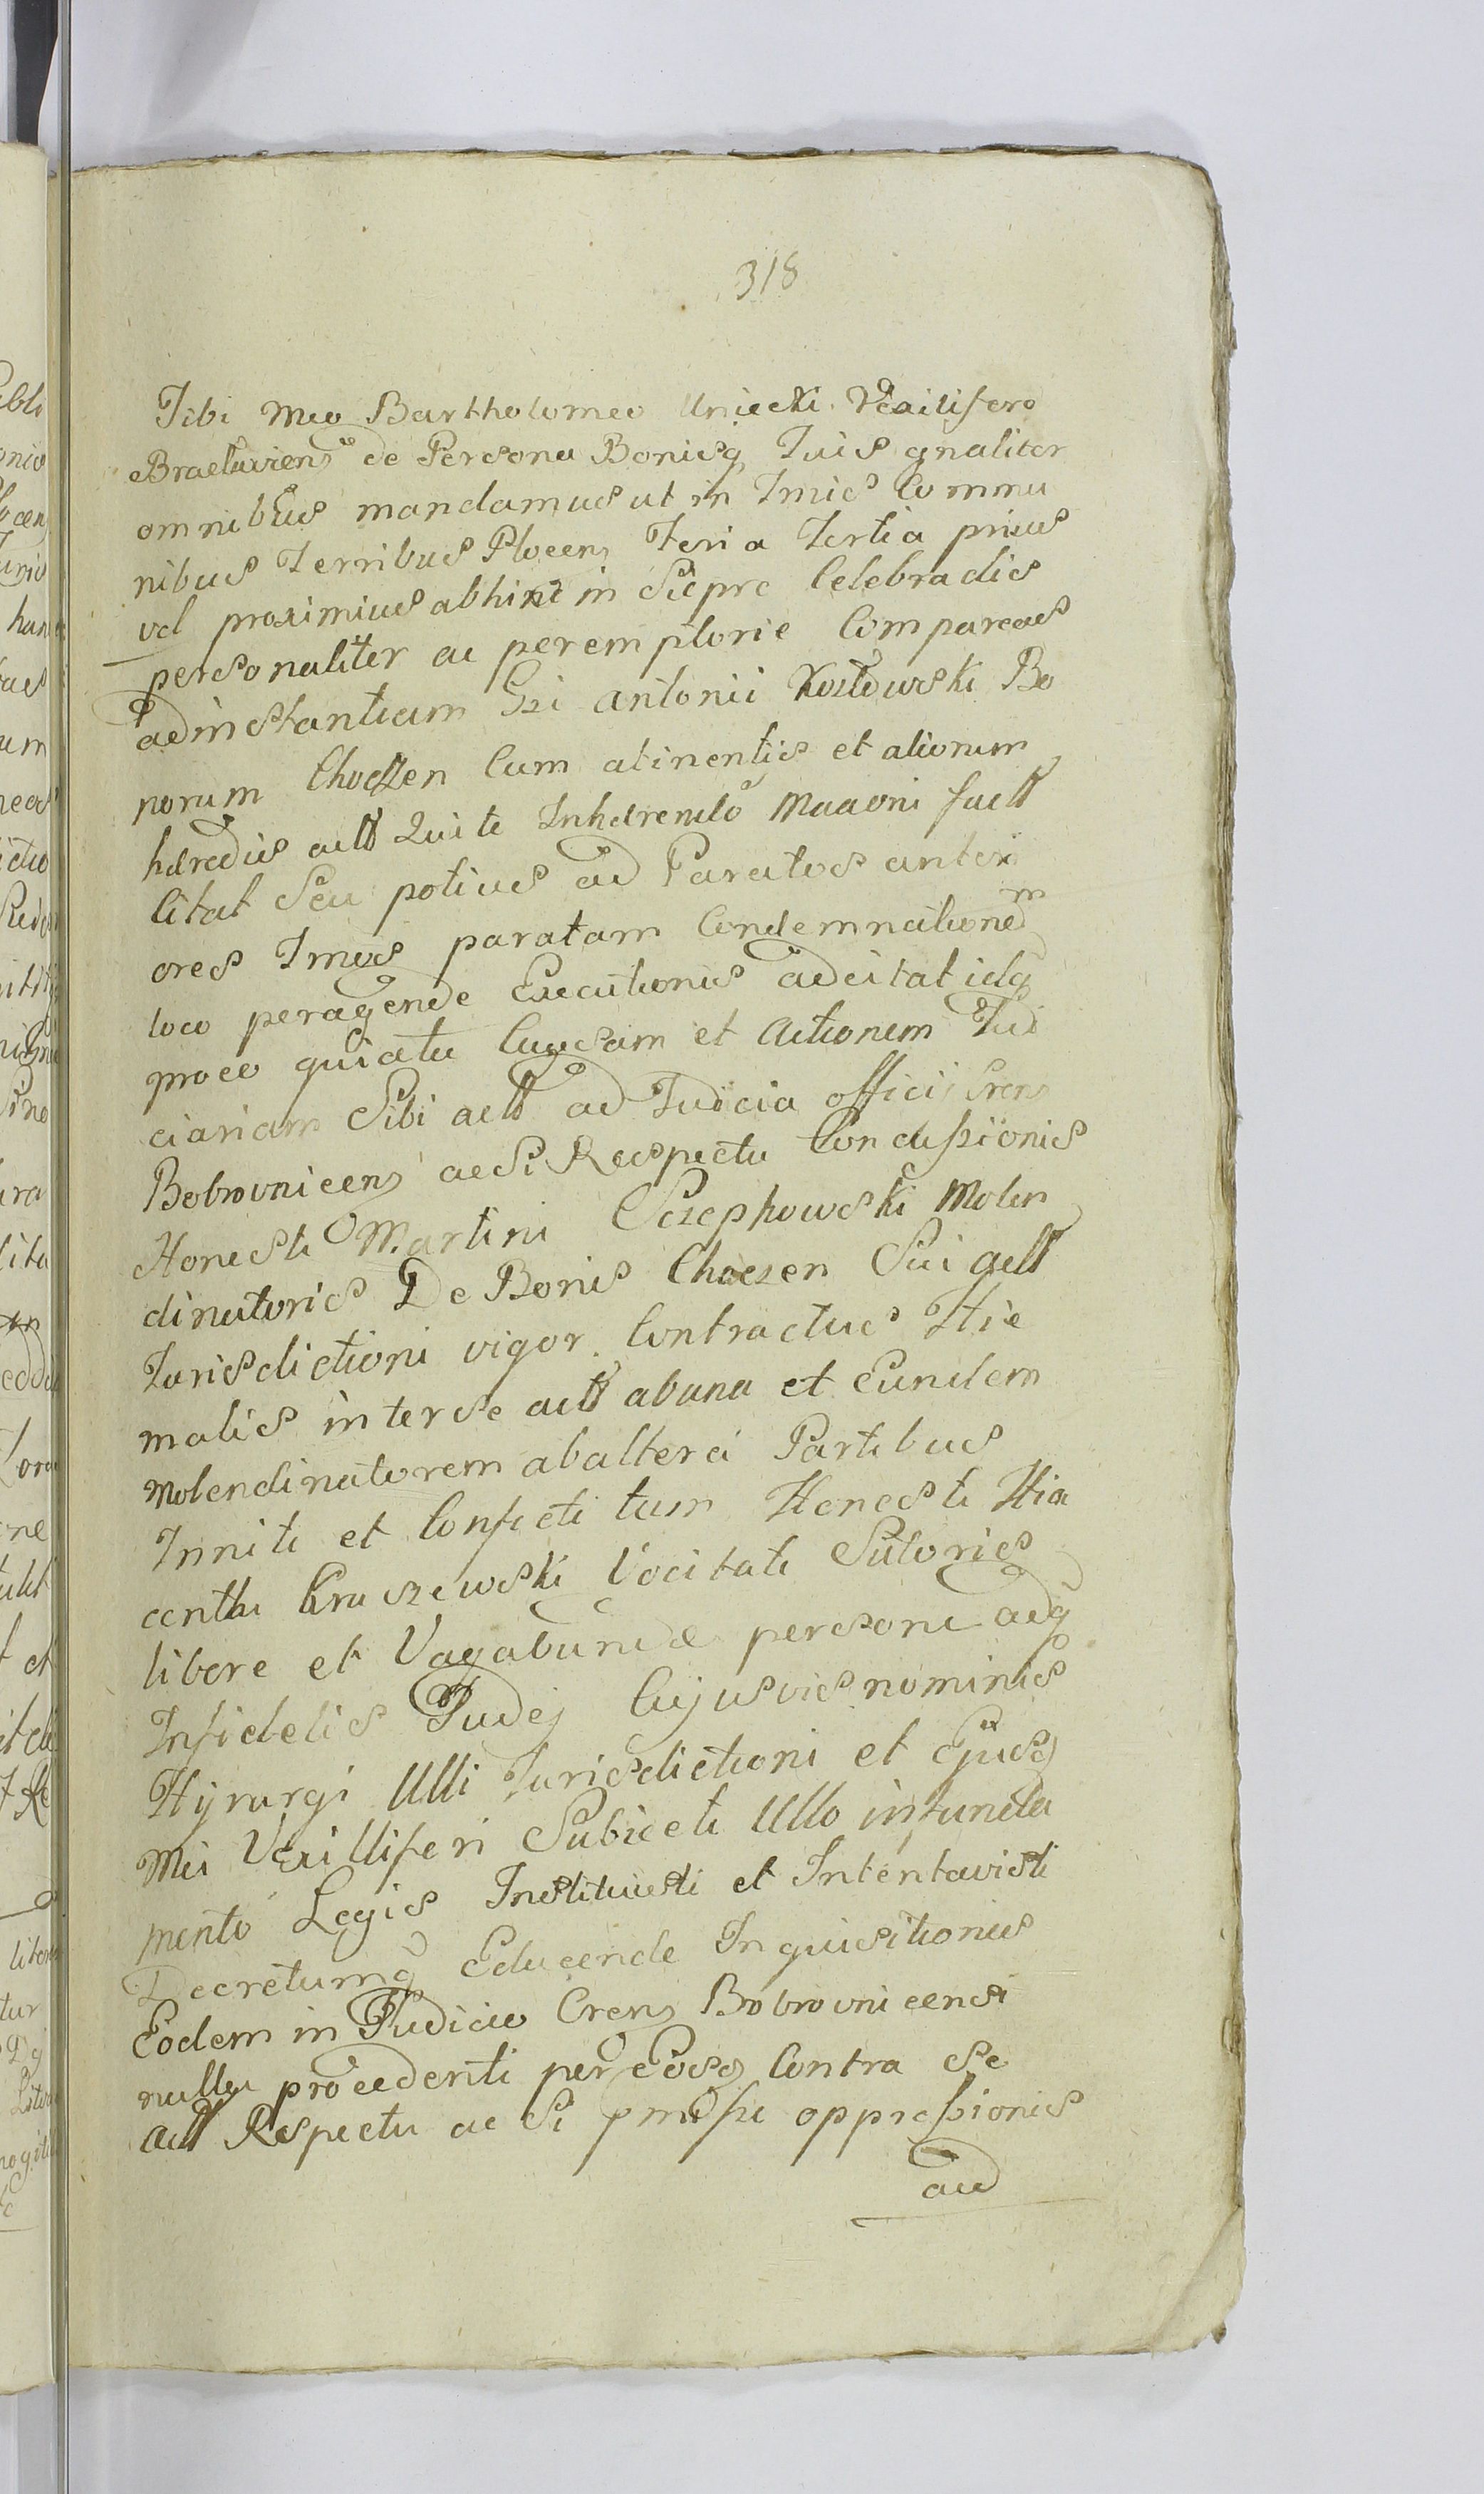 318
Tibi Mco Bartholomeo Uniecki Vexilifero
Braclaviens de Persona Bonisq Tuis gnaliter
omnibus mandamus ut in Tmis Commu
nibus Terribus Plocens Feria Tertia prius
vel proximius abhinc in Sierpc Celebradis
personaliter ac peremptorie Compareas
ad instantiam Gsi Antonii Kozłowski Bo
norum Choczen Cum atinentijs et aliorum
hæredis actt Qui te Inhærendo Mtaoni fact
Citat Seu potius ad Paratos anteri
ores Tmos paratam Condemnationem
loco peragende Executionis adcitat idq
proeo quia tu Causam et Actionem Judi
ciariam Sibi actt ad Judicia officij Crens
Bobrovnicens ac Si Respectu Concussionis
Honesti Martini Sczepkowski Molen
dinatoris De Bonis Choczen Sui actt
Jurisdictioni vigor. Contractus Hie
malis inter se actt ab una et Eundem
Molendinatorem ab altera Partibus
Initi et Confecti tum Honesti Hia
centhi Kruszewski Vocitati Sutoris
libere et Vagabundæ persone acq
Infidelis Judej Cujusvis nominis
Hyrurgi Ulli Jurisdictioni et Ejusq
Mci Vexilliferi Subiecti Ullo in funda
mento Legis Instituisti et Intentavisti
Decretumq Educende Inquisitionis
Eodem in Judicio Crens Bobrovnicensi
nulla procedenti per Eosq Contra Se
actt Respectu ac Si pmissi oppressionis
ad